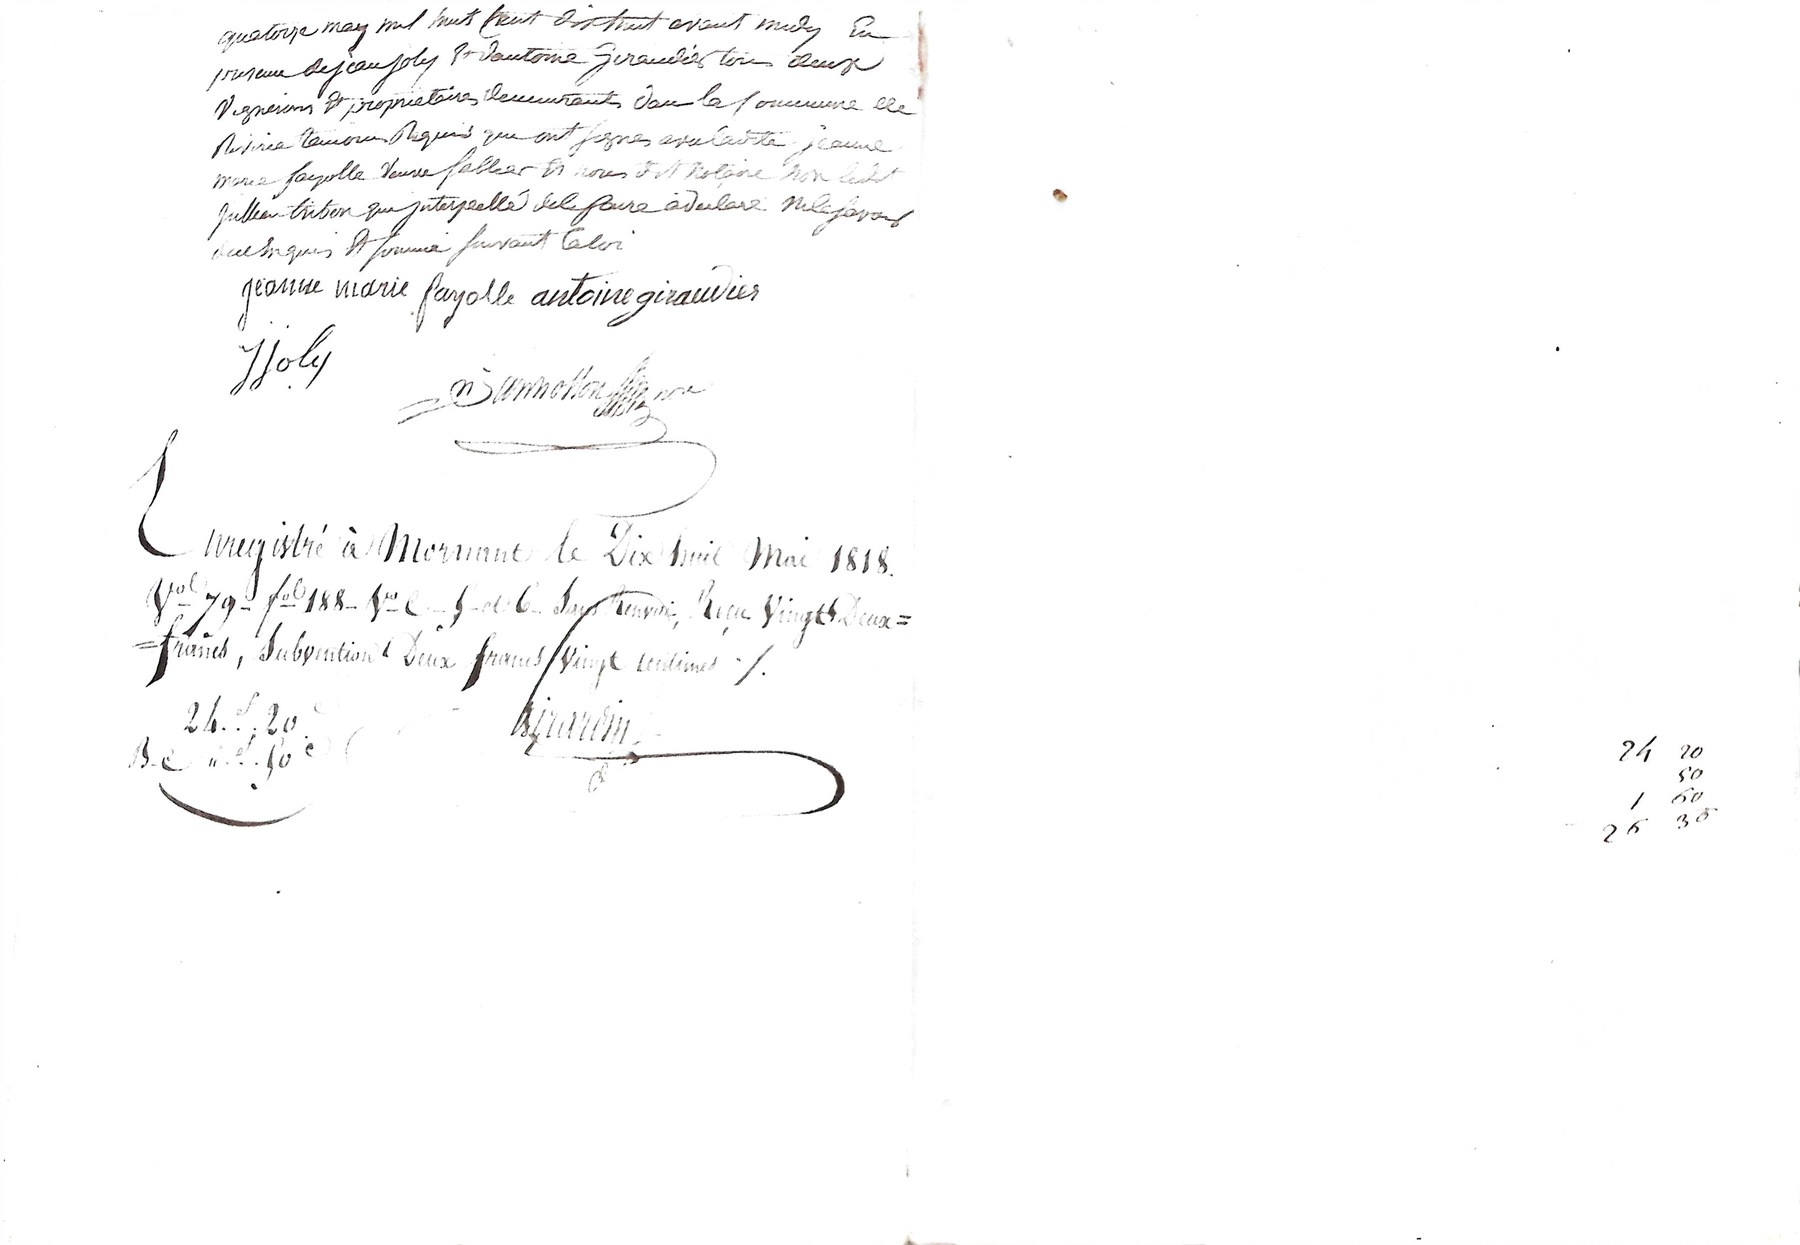 quatorze may mil huit cent dix huit avant midy En
presence de jean joly Et d'antoine Giraudier tous deux
Vignerons Et proprietaires demeurants dans la Commune de
Riverie temoins Requis qui ont signes avec ladite jeanne
marie fayolle veuve Et nous dit Notaire non ledit
jullien qui interpellé de le faire a declaré ne le savoir
de ce Enquis Et sommé suivant la loi
jeanne marie fayolle antoine giraudier
J Joly
not re
Enregistré à Mornant le Dix huit Mai 1818.
Vol. 79 fol. 188 Vo C. 5 et 6 Sans Renvoi, Reçu Vingt Deux=
=francs, Subvention Deux francs Vingt centimes ./.
24. f. 20
50 c
Girardin
24 20
50
1 60
26 30